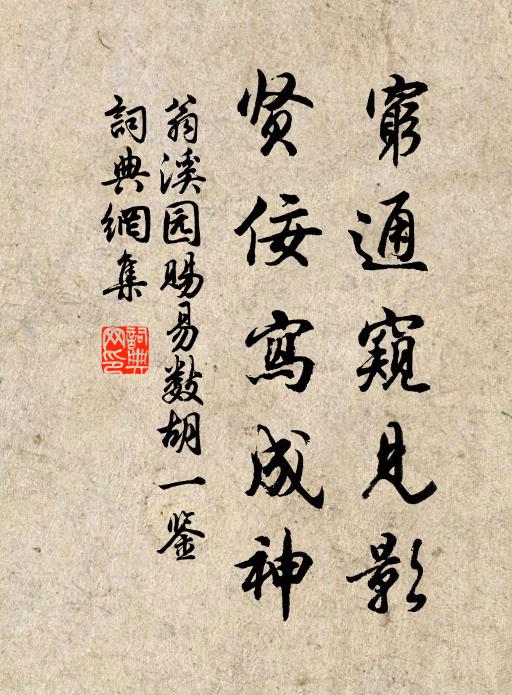 窮通窺見影
贤佞寫成神
翁溪园赐易数胡一鉴
詞典網集
詞典网印